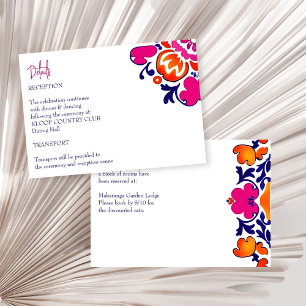 Details
RECEPTION
The celebration continues
with dinner & dancing
following the ceremony at
KLOOF COUNTRY CLUB
Dining Hall
TRANSPORT
Transport will be provided to
the ceremony and reception venue
a block of rooms have
been reserved at:
Makaranga Garden Lodge
Please book by 5/10 for
the discounted rate.